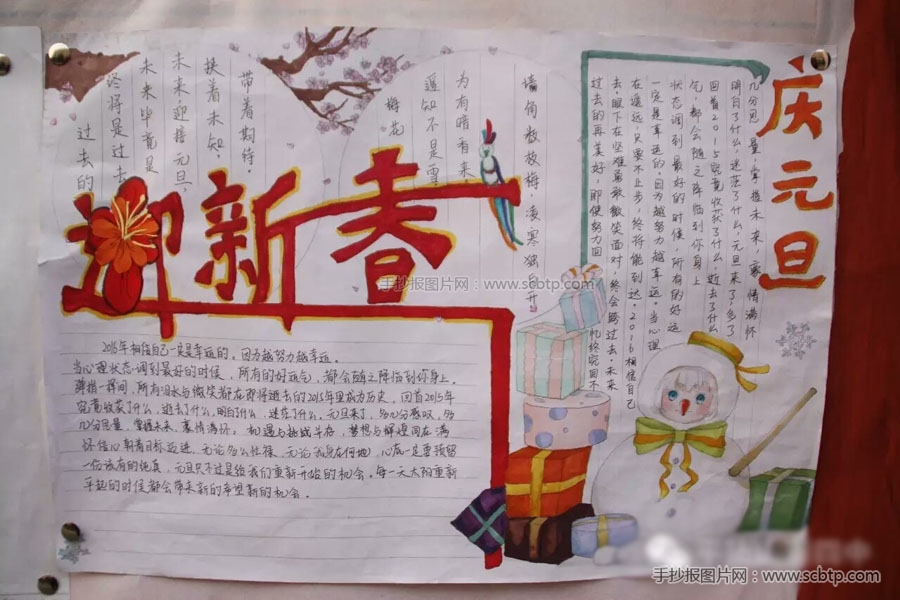 迎新春
庆元旦
墙角数枝梅,凌寒独自开
为有暗香来
遥知不是雪
梅花
带着期待,
扶着未知,
未来,迎接元旦,
未来毕竟是
终将是过去
过去的
几分思量,掌握未来,豪情满怀
明白了什么,迷茫了什么,元旦来了,多了
回首2015究竟收获了什么,逝去了什么
气,都会随之降临到你身上
状态调到最好的时候,所有的好运
一定是幸运的,因为越努力越幸运。当心理
在遥远,只要不止步,终将能到达。2016相信自己
去,眼下在坚难勇敢微笑面对,终会跨过去。未来
过去的再美好,即使努力回忆终究回不
2016年相信自己一定是幸运的。因为越努力越幸运。
当心理状态调到最好的时候,所有的好运气,都会随之降临到你身上。
弹指一挥间,所有泪水与微笑都在即将逝去的2015年里成为历史,回首2015年
究竟收获了什么,逝去了什么,明白什么,迷茫了什么,元旦来了,多几分感叹,多
几分思量,掌握未来,豪情满怀。机遇与挑战并存,梦想与辉煌同在满
怀信心朝着目标迈进,无论多么忙碌,无论我身在何地,心底一定要预留
一份该有的纯真,元旦只不过是给我们重新开始的机会。每一天太阳重新
升起的时候都会带来新的希望新的机会。
手抄报图片网:www.scbtp.com
手抄报图片网:www.scbtp.com